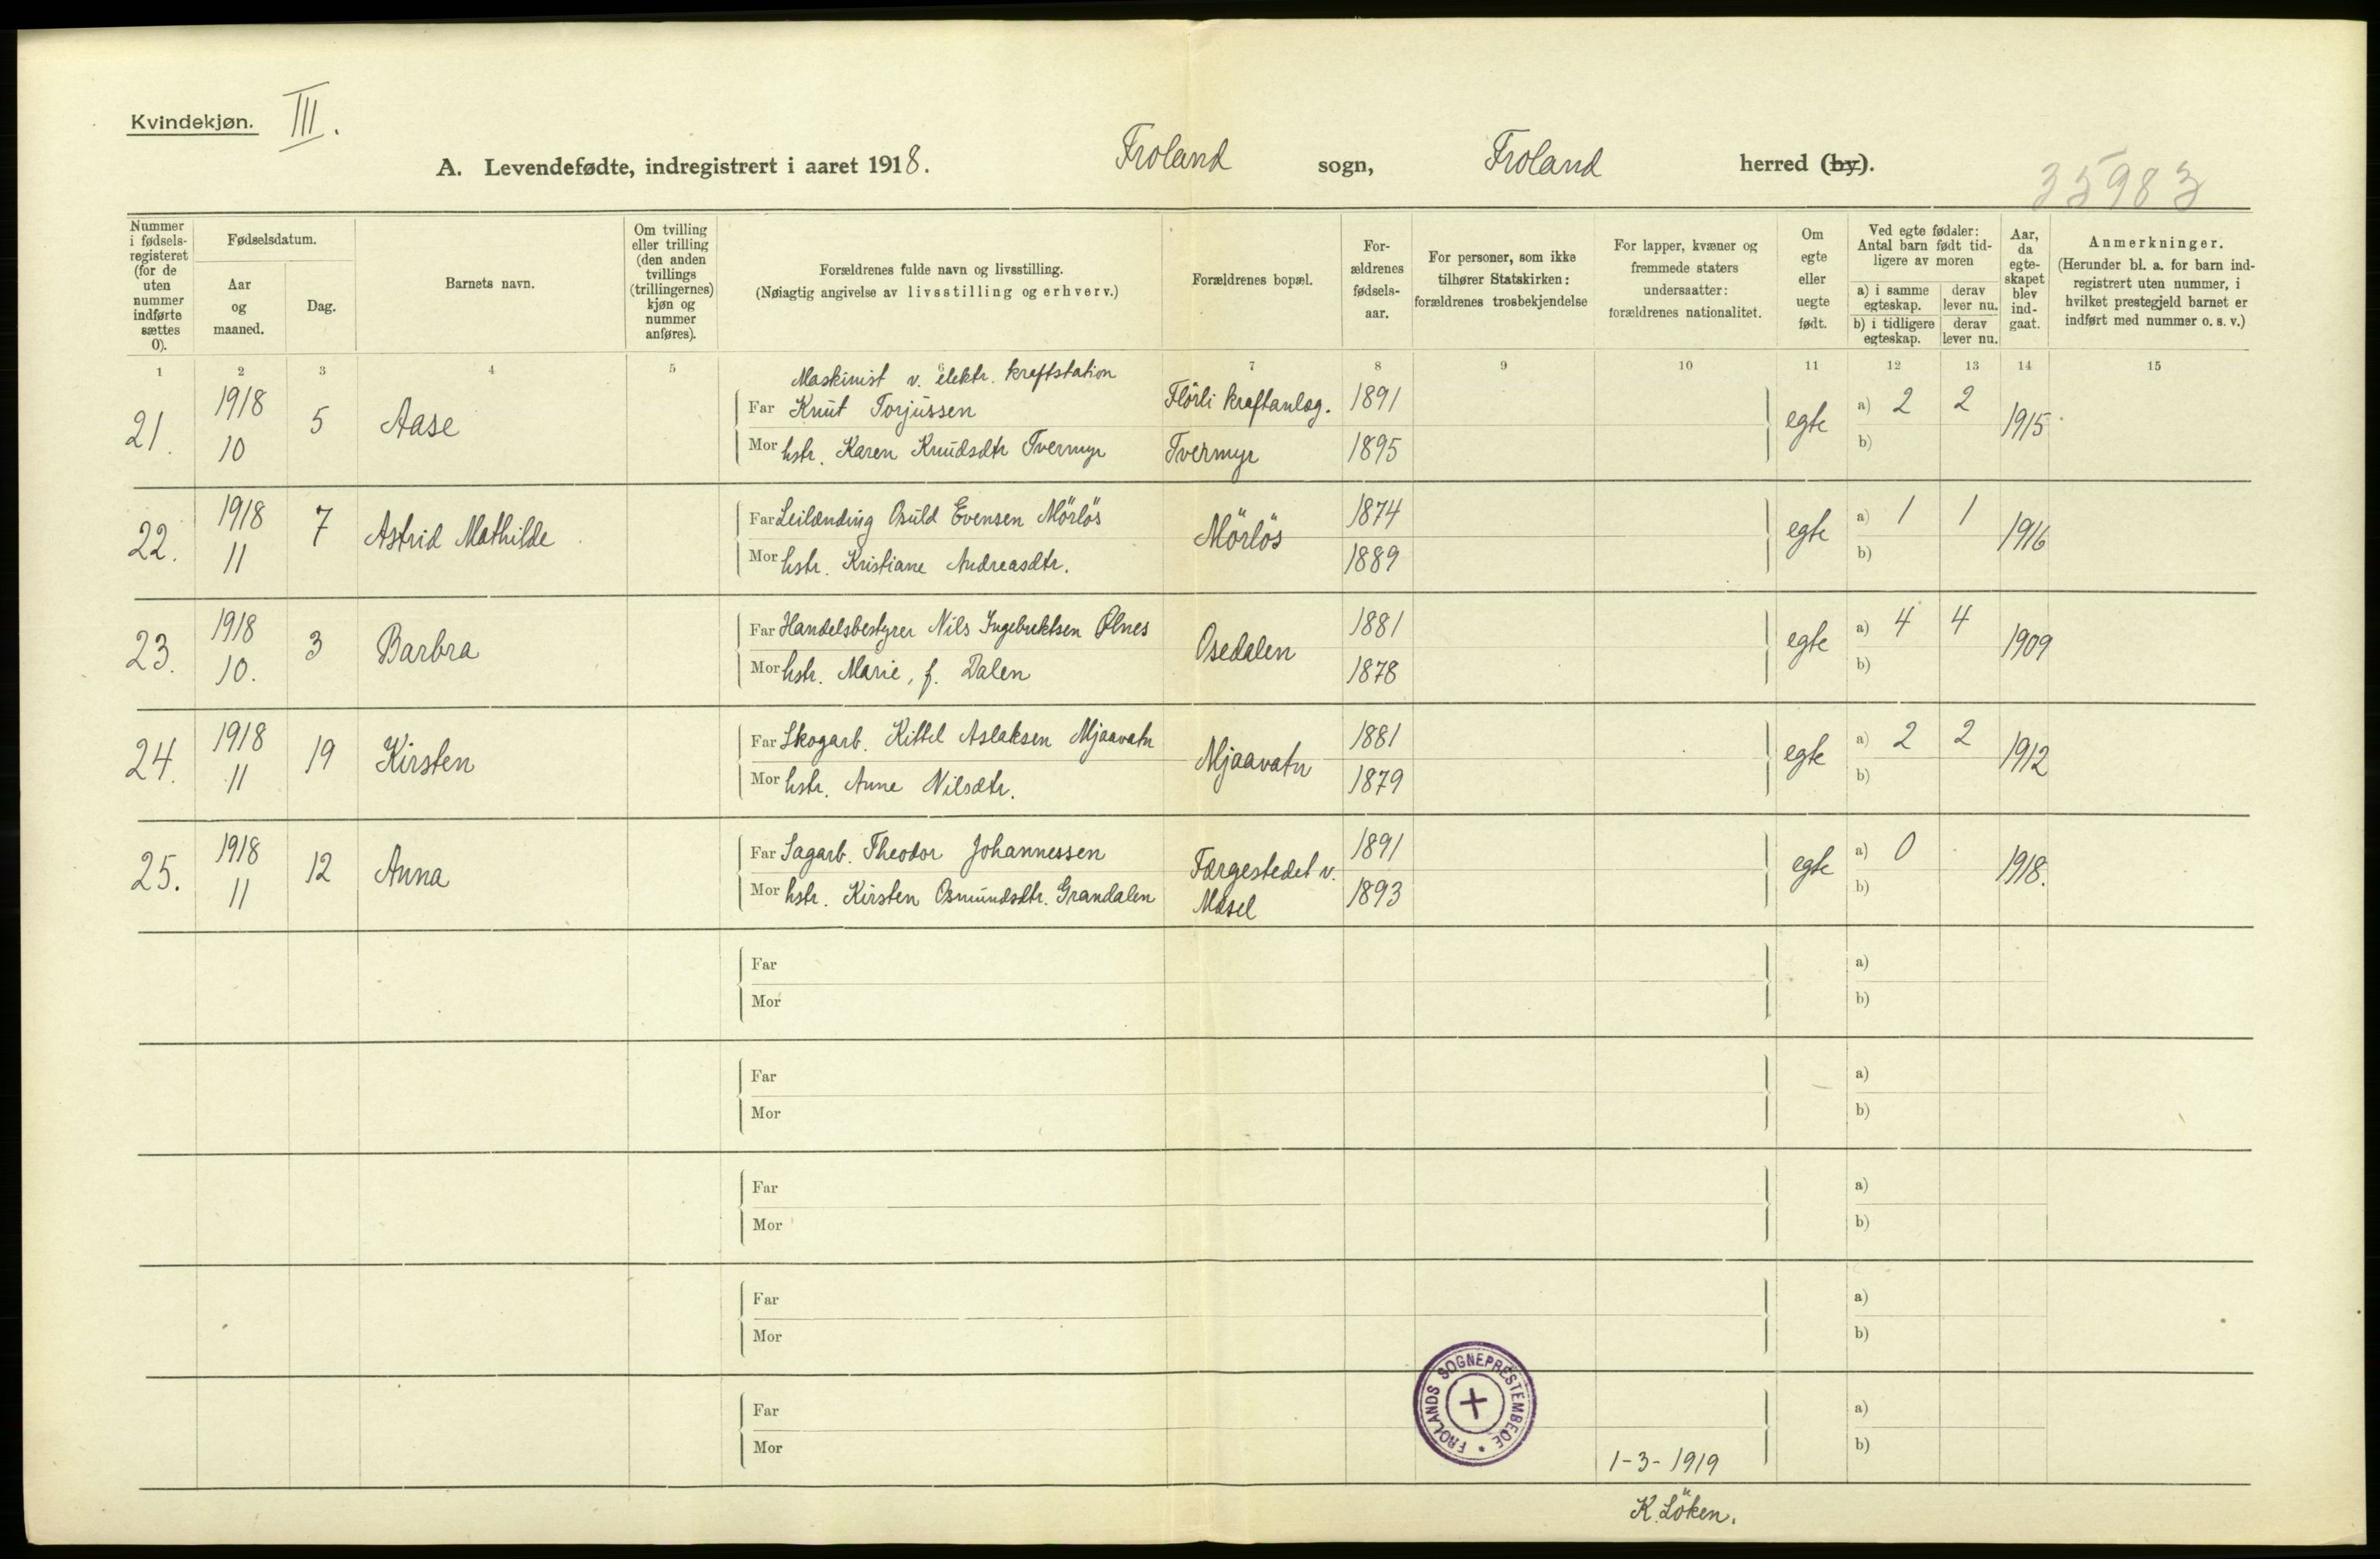 Kvindekjøn. III.
A. Levendefødte, indregistrert i aaret 1918. Froland sogn, Froland herred (by).
35983
Nummer i fødsels-registeret (for de uten nummer indførte sættes 0).
Fødselsdatum.
Aar og maaned.
Dag.
Barnets navn.
Om tvilling eller trilling (den anden tvillings (trillingernes) kjøn og nummer anføres).
Forældrenes fulde navn og livsstilling.
(Nøiagtig angivelse av livsstilling og erhverv.)
Forældrenes bopæl.
For-ældrenes fødsels-aar.
For personer, som ikke tilhører Statskirken: forældrenes trosbekjendelse
For lapper, kvæner og fremmede staters undersaatter: forældrenes nationalitet.
Om egte eller uegte født.
Ved egte fødsler: Antal barn født tid-ligere av moren
a) i samme egteskap.
derav lever nu.
b) i tidligere egteskap.
derav lever nu.
Aar, da egte-skapet blev ind-gaat.
Anmerkninger.
(Herunder bl. a. for barn ind-registrert uten nummer, i hvilket prestegjeld barnet er indført med nummer o. s. v.)
1 2 3 4 5 6 7 8 9 10 11 12 13 14 15
Maskinist v. elektr. kraftstation
21. 1918 10 5 Aase Far Knut Torjussen Flörli kraftanlæg. 1891 egte a) 2 2 1915
Mor hstr. Karen Knudsdtr Tvermyr Tvermyr 1895 b)
22. 1918 11 7 Astrid Mathilde Far Leilænding Osuld Evensen Mörlös Mörlös 1874 egte a) 1 1 1916
Mor hstr. Kristiane Andreasdtr. 1889 b)
23. 1918 10. 3 Barbra Far Handelsbestyrer Nils Ingebrektsen Ølnes Osedalen 1881 egte a) 4 4 1909
Mor hstr. Marie, f. Dalen 1878 b)
24. 1918 11 19 Kirsten Far Skogarb. Kittel Aslaksen Mjaavatn Mjaavatn 1881 egte a) 2 2 1912
Mor hstr. Anne Nilsdtr. 1879 b)
25. 1918 11 12 Anna Far Sagarb. Theodor Johannessen Færgestedet v. 1891 egte a) 0 1918.
Mor hstr. Kirsten Osmundsdtr. Grandalen Mæsel 1893 b)
Far a)
Mor b)
Far a)
Mor b)
Far a)
Mor b)
Far a)
Mor b)
Far a)
Mor b)
FROLANDS SOGNEPRESTEMBEDE
1-3-1919
K. Löken.